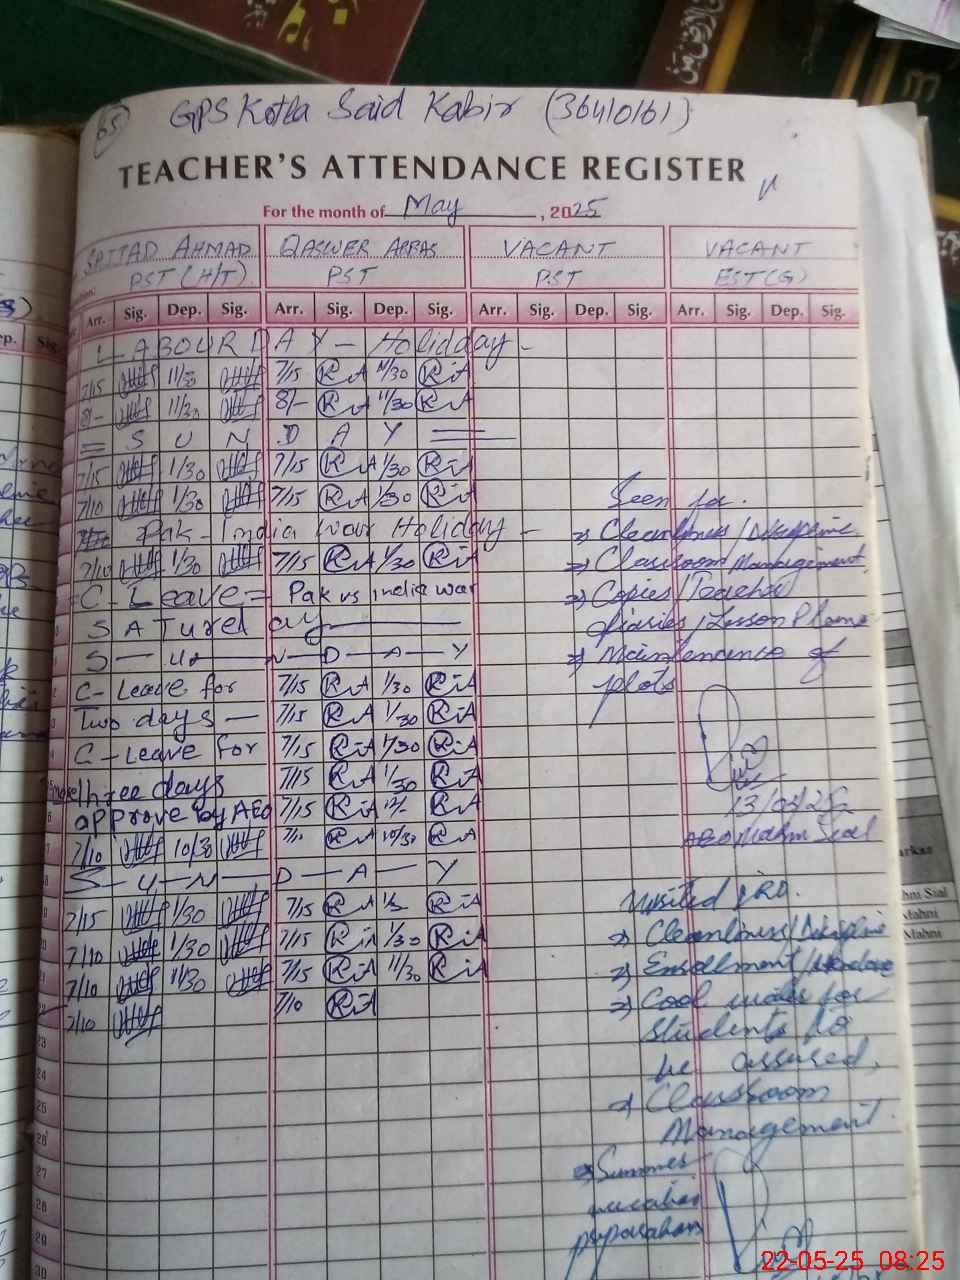 65
GPS Kotla Said Kabir (36410161)
TEACHER'S ATTENDANCE REGISTER
For the month of May, 2025
SAJJAD AHMAD QASWER ABBAS VACANT VACANT
PST (H/T) PST PST EST(G)
Arr. Sig. Dep. Sig. Arr. Sig. Dep. Sig. Arr. Sig. Dep. Sig. Arr. Sig. Dep. Sig.
LABOUR DAY - Holidday -
7/15 11/30 7/15 RA 11/30 RA
8/- 11/30 8/- RA 11/30 RA
= S U N D A Y =
7/15 1/30 7/15 RA 1/30 RA
7/10 1/30 7/15 RA 1/30 RA
Pak - India war Holiday -
7/10 1/30 7/15 RA 1/30 RA
C - Leave = Pak vs india war
S A Turd ay
S - U - N - D - A - Y
C - Leave for 7/15 RA 1/30 RA
Two days - 7/15 RA 1/30 RA
C - Leave for 7/15 RA 1/30 RA
three days 7/15 RA 1/30 RA
approve by AEO 7/15 RA RA
7/10 10/30 RA 10/30 RA
S - U - N - D - A - Y
7/15 1/30 7/15 RA RA
7/10 1/30 7/15 RA 1/30 RA
7/10 11/30 7/15 RA 11/30 RA
7/10 7/10 RA
23
24
25
26
27
28
29
30
Seen for.
⇒ Cleanliness / Discipline
⇒ Classroom Management
⇒ Copies / Teacher
diaries / Lesson Planns
⇒ Maintenance of
plots
AEO Mahni Sial
Visited &
⇒ Cleanliness / Discipline
⇒ Enrollment /
⇒ Cool water for
students to
be assured.
⇒ Classroom
Management
⇒ Summer
vacation
preparation
arkaz
hni Sial
Mahni
Mahni
22-05-25 08:25